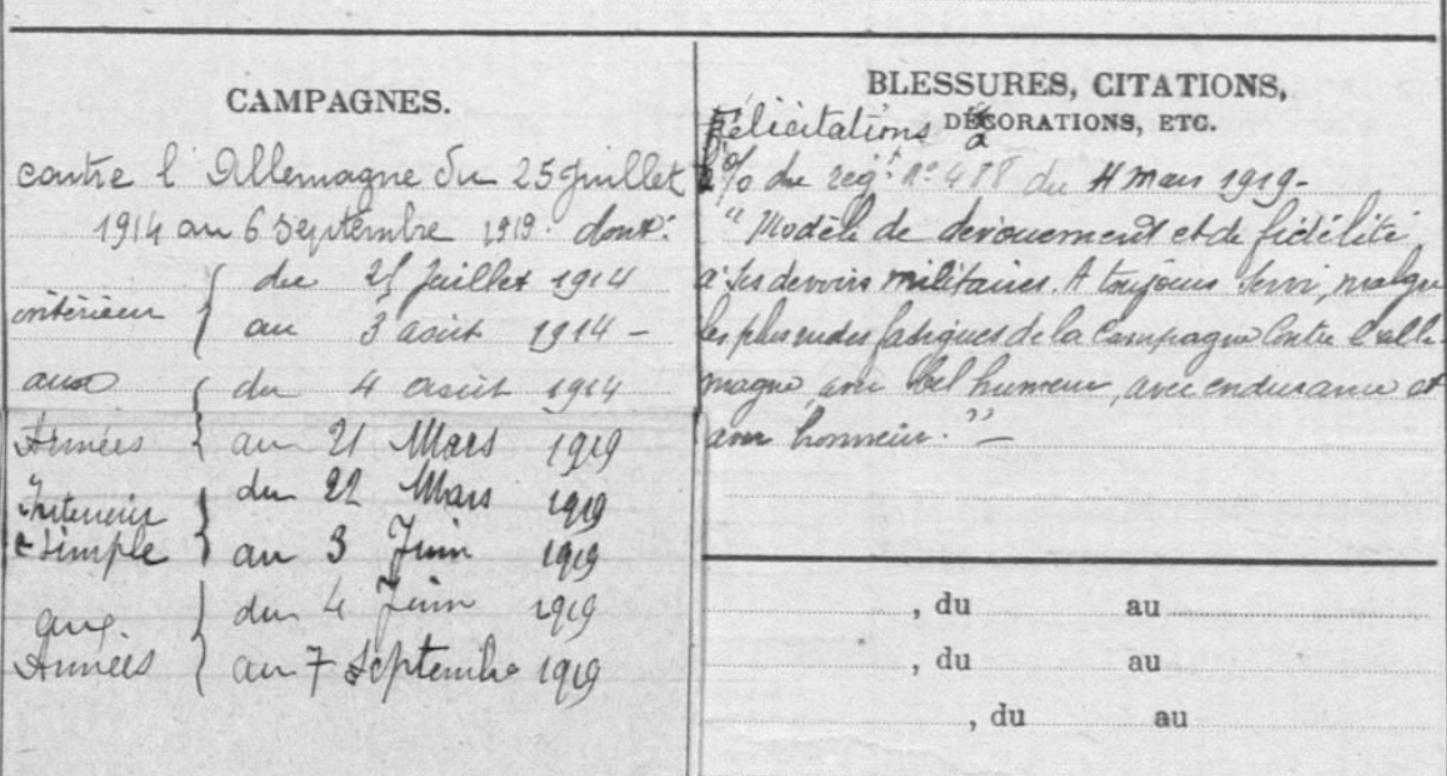 CAMPAGNES.
contre l'Allemagne du 25 Juillet
1914 au 6 Septembre 1919. dont:
intérieur { du 25 Juillet 1914
au 3 août 1914 -
aux { du 4 août 1914
Armées { au 21 Mars 1919
Intérieur } du 22 Mars 1919
simple } au 3 Juin 1919
aux. { du 4 Juin 1919
Armées { au 7 Septembre 1919
BLESSURES, CITATIONS,
DÉCORATIONS, ETC.
Félicitations à
l'o/o du régt n° 488 du 11 mars 1919-
"Modèle de dévouement et de fidélité
à ses devoirs militaires. A toujours servi, malgré
les plus rudes fatigues de la Campagne Contre l'Alle-
magne, avec bel humeur, avec endurance et
avec honneur." -
, du au
, du au
, du au